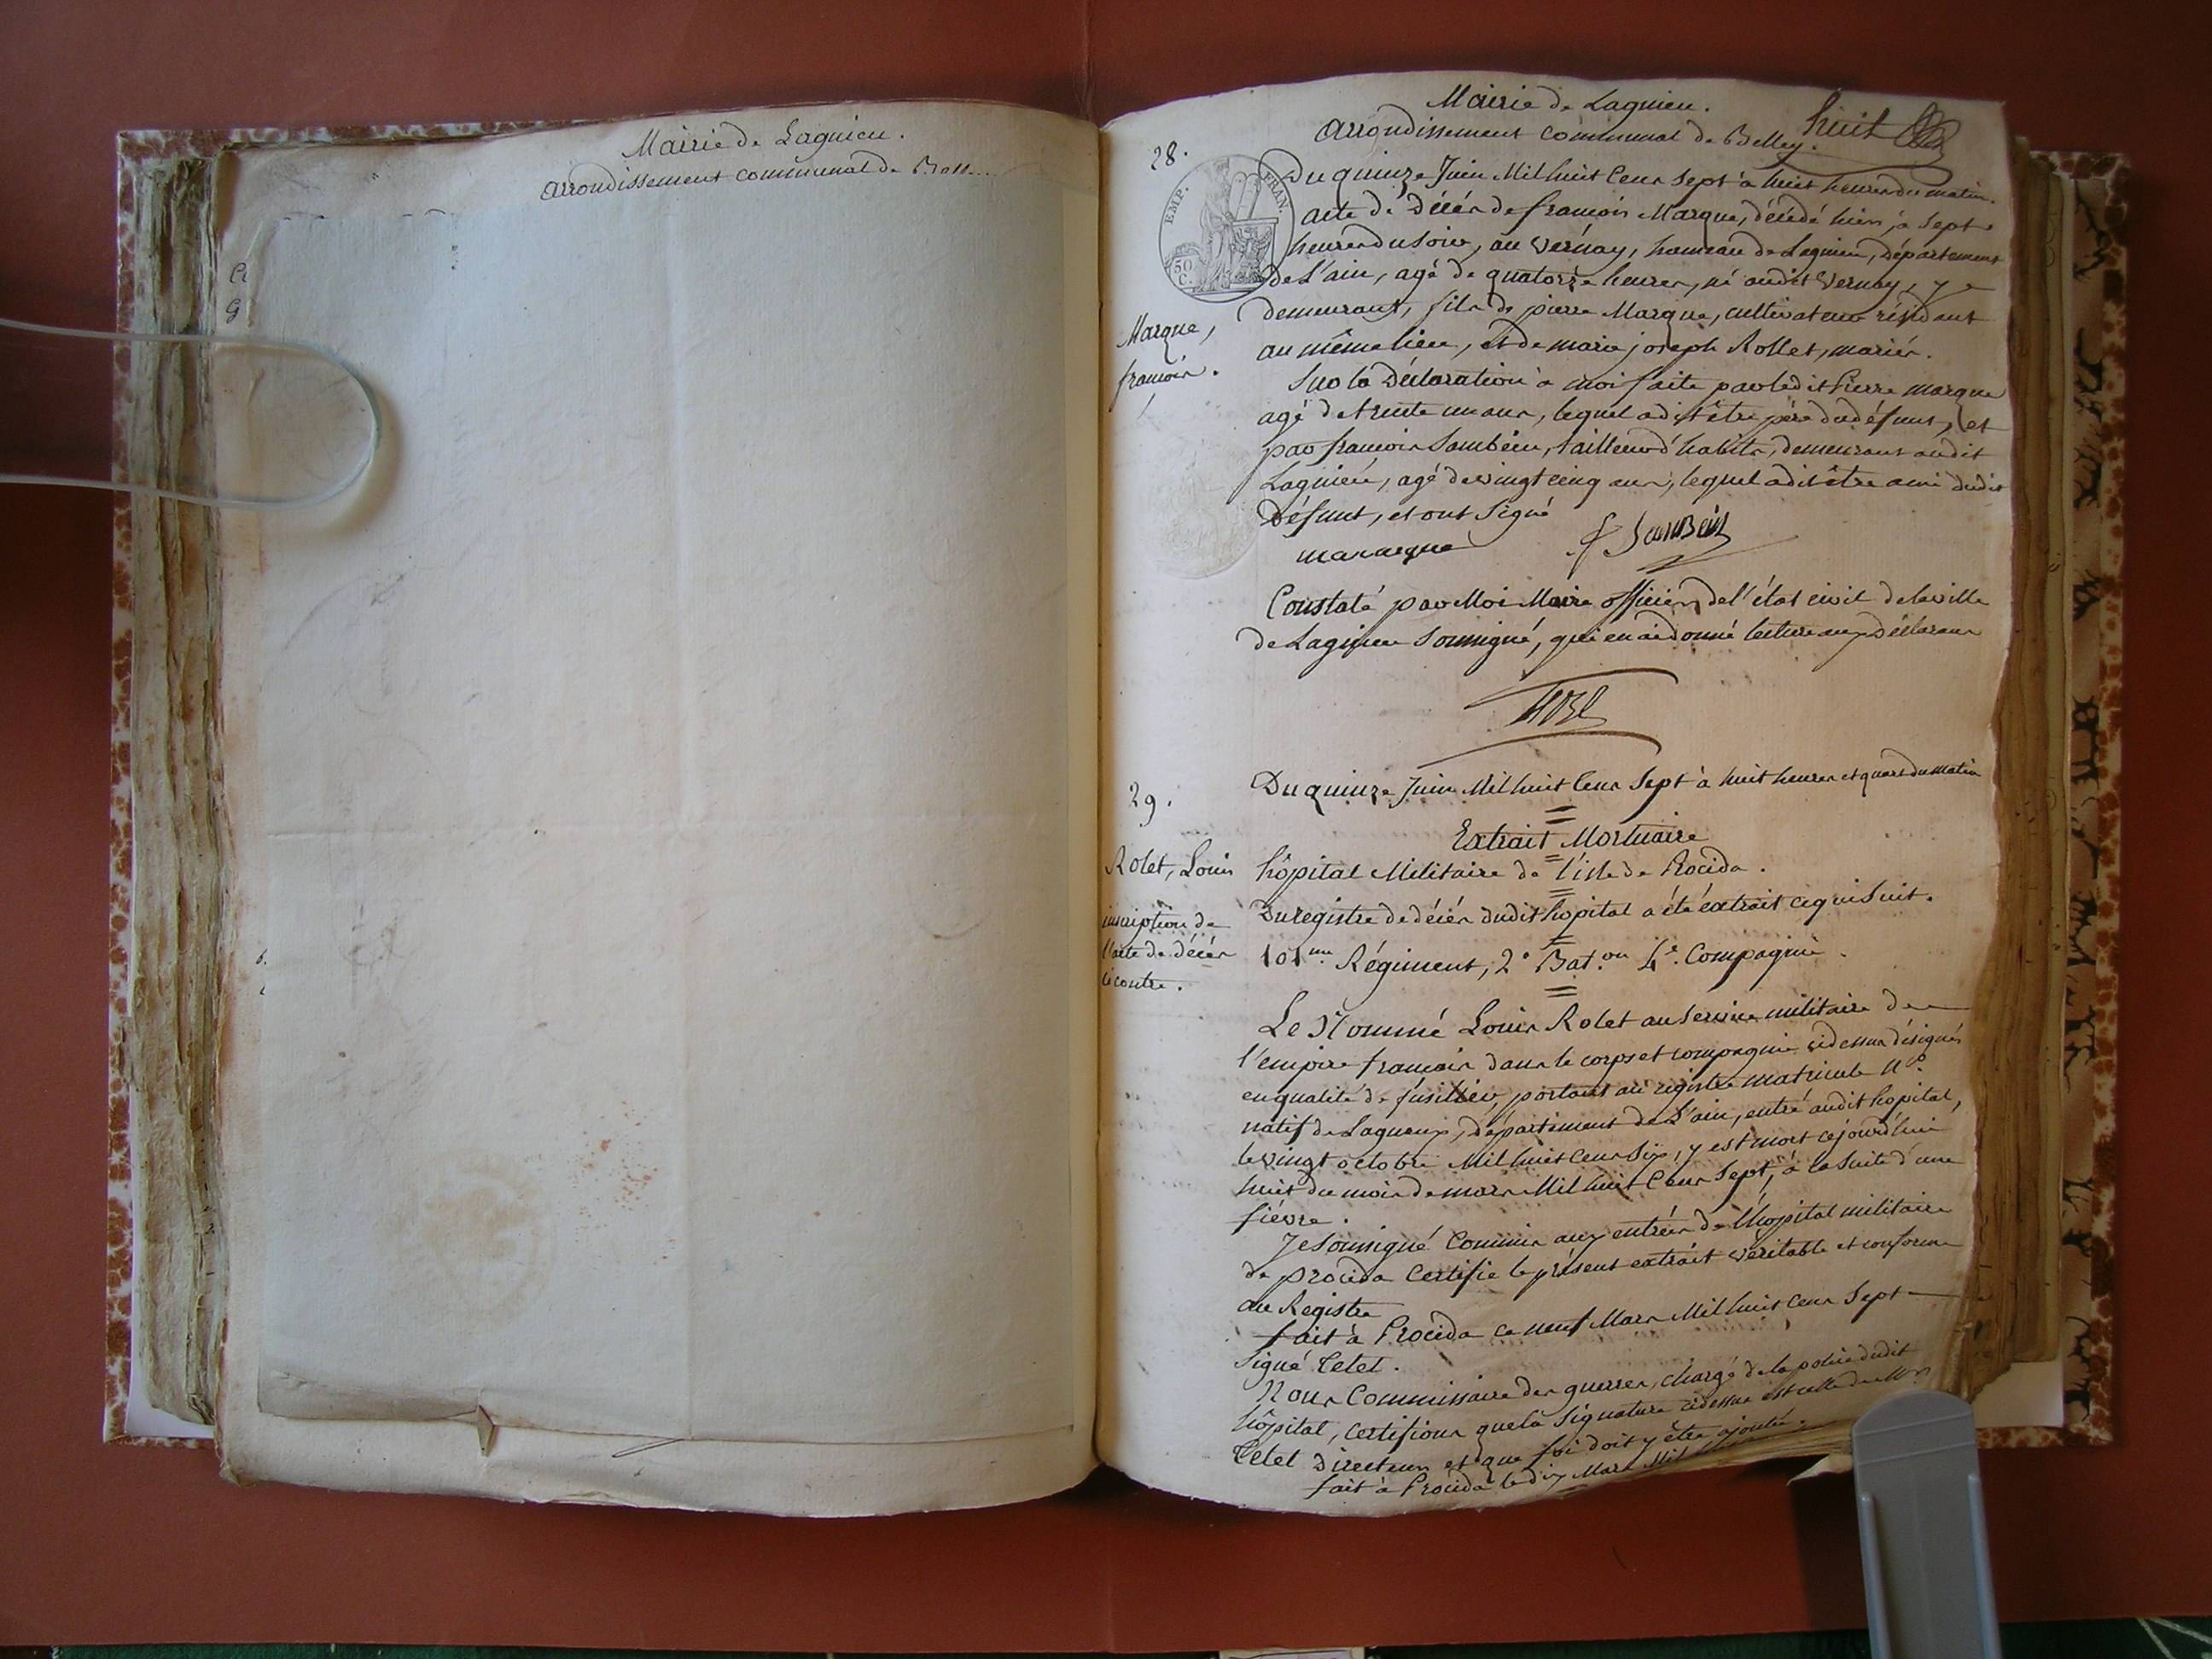 Mairie de Lagnieu.
arrondissement communal de
Mairie de Lagnieu.
arrondissement communal de Belley. huit
28.
EMP. FRAN.
50 C.
Du quinze Juin Mil huit Cens Sept à huit heures du matin.
acte de Décès de françois Marque, décédé hier, à Sept
heures du Soir, au Vernay, hameau de Lagnieu, Département
de L'ain, agé de quatorze heures, né audit Vernay, y
demeurant, fils de pierre Marque, cultivateur résidant
au même lieu, et de marie joseph Rollet, mariés.
Marque,
françois.
Sur la Déclaration à moi faite par ledit Pierre marque
agé de trente un ans, lequel a dit être père du défunt, et
par françois Sambein, tailleur d'habits, demeurant audit
Lagnieu, agé de vingt cinq ans, lequel a dit être ami dudit
Défunt, et ont Signé
f Sambein
Constaté par Moi Maire officier de l'état civil de la ville
de Lagnieu Soussigné, qui en ai donné lecture aux Déclarans
29.
Du quinze Juin Mil huit Cens Sept à huit heures et quart du matin
Extrait Mortuaire
Rolet, Louis
inscription de
l'acte de décès
ci contre.
hôpital Militaire de l'isle de Procida.
Du registre de décès dudit hopital a été extrait ce qui Suit.
101me Régiment, 2e Bat.on 4e Compagnie.
Le Nommé Louis Rolet au Service militaire de
l'empire françois dans le corps et compagnie cidessus désignés
en qualité de fusilier, portant au registre matricule N°.
natif de Lagneux, Département de L'ain, entré audit hopital,
le vingt octobre Mil huit Cens Six, y est mort cejourd'hui
huit du mois de mars Mil huit Cens Sept, à la Suite d'une
fièvre.
Je Soussigné Commis aux entrées de l'hopital militaire
de procida Certifie le présent extrait véritable et conforme
au Registre
fait à Procida ce neuf Mars Mil huit Cens Sept
Signé Tetet.
Nous Commissaire des guerres, chargé de la police dudit
hôpital, Certifions que la Signature cidessus est celle de Mr
Tetet Directeur et que foi doit y être ajoutée.
fait à Procida le dix Mars Mil